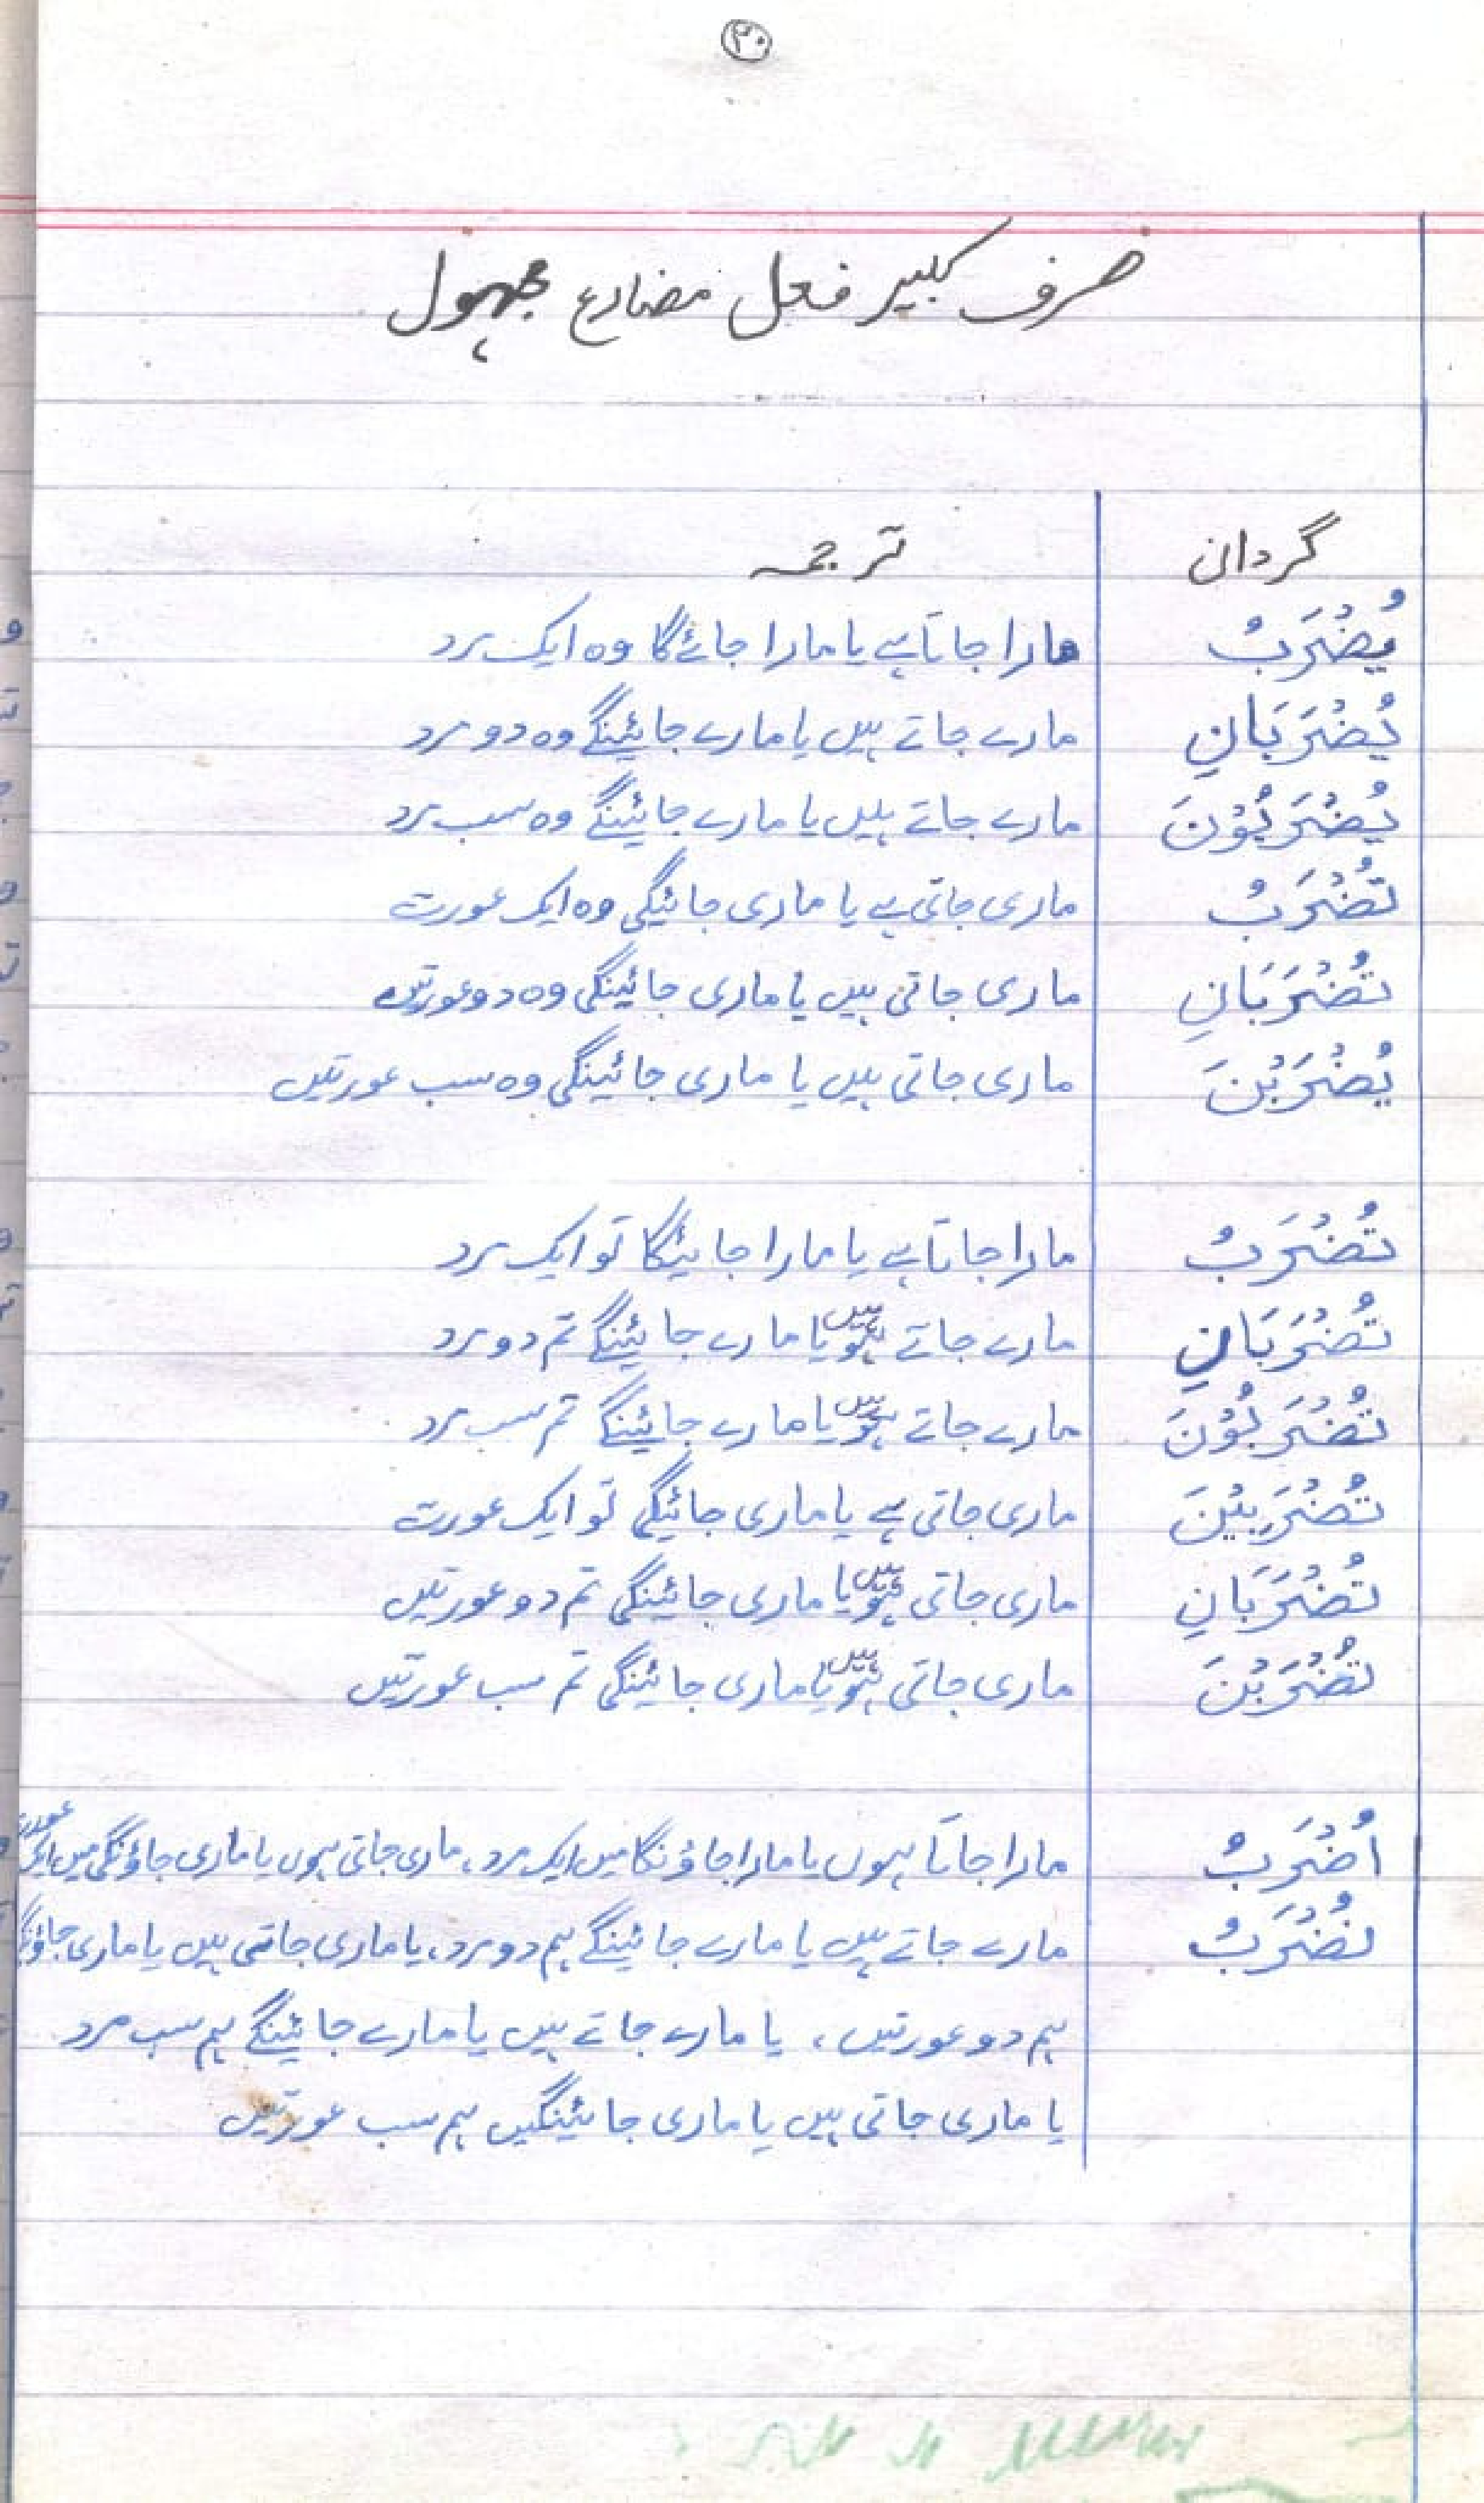 ۳۰
صرف کبیر فعل مضارع مجہول
گردان ترجمہ
یُضْرَبُ مارا جاتا ہے یا مارا جائے گا وہ ایک مرد
یُضْرَبَانِ مارے جاتے ہیں یا مارے جائینگے وہ دو مرد
یُضْرَبُوْنَ مارے جاتے ہیں یا مارے جائینگے وہ سب مرد
تُضْرَبُ ماری جاتی ہے یا ماری جائیگی وہ ایک عورت
تُضْرَبَانِ ماری جاتی ہیں یا ماری جائینگی وہ دو عورتیں
یُضْرَبْنَ ماری جاتی ہیں یا ماری جائینگی وہ سب عورتیں
تُضْرَبُ مارا جاتا ہے یا مارا جائیگا تو ایک مرد
تُضْرَبَانِ مارے جاتے ہیں یا مارے جائینگے تم دو مرد
تُضْرَبُوْنَ مارے جاتے ہیں یا مارے جائینگے تم سب مرد
تُضْرَبِیْنَ ماری جاتی ہے یا ماری جائیگی تو ایک عورت
تُضْرَبَانِ ماری جاتی ہیں یا ماری جائینگی تم دو عورتیں
تُضْرَبْنَ ماری جاتی ہیں یا ماری جائینگی تم سب عورتیں
اُضْرَبُ مارا جاتا ہوں یا مارا جاؤنگا میں ایک مرد، ماری جاتی ہوں یا ماری جاؤنگی میں ایک عورت
نُضْرَبُ مارے جاتے ہیں یا مارے جائینگے ہم دو مرد، یا ماری جاتی ہیں یا ماری
ہم دو عورتیں، یا مارے جاتے ہیں یا مارے جائینگے ہم سب مرد
یا ماری جاتی ہیں یا ماری جائینگیں ہم سب عورتیں